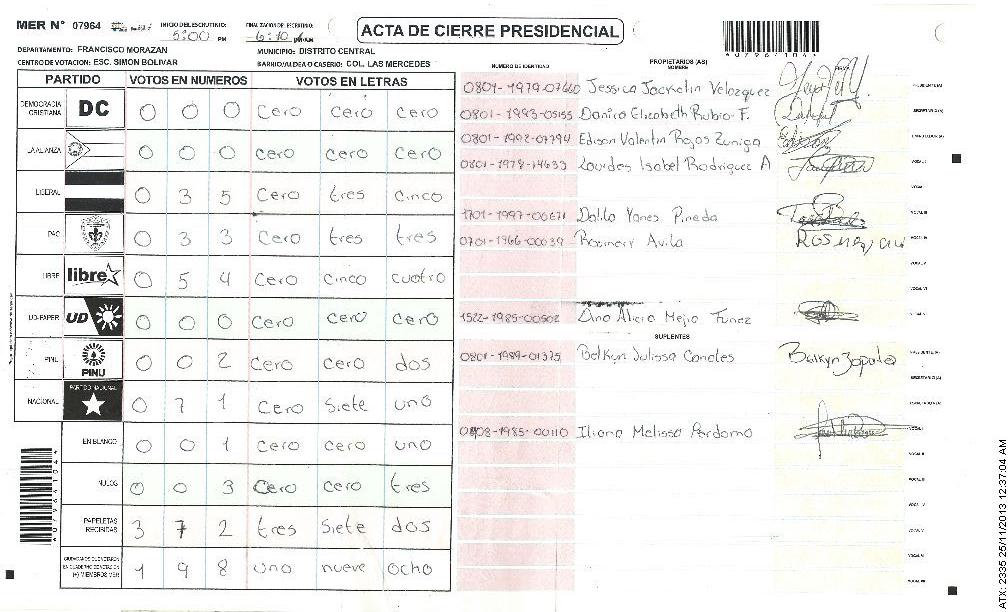 MER N° 07964
INICIO DEL ESCRUTINIO: 5:00 PM
FINALIZACION DEL ESCRUTINIO: 6:10
ACTA DE CIERRE PRESIDENCIAL
A07964104
DEPARTAMENTO: FRANCISCO MORAZAN
MUNICIPIO: DISTRITO CENTRAL
CENTRO DE VOTACION: ESC. SIMON BOLIVAR
BARRIO/ALDEA O CASERIO: COL. LAS MERCEDES
PARTIDO VOTOS EN NUMEROS VOTOS EN LETRAS
DEMOCRACIA CRISTIANA DC 0 0 0 Cero cero cero
LA ALIANZA 0 0 0 cero cero cero
LIBERAL 0 3 5 Cero tres cinco
PAC 0 3 3 Cero tres tres
LIBRE libre 0 5 4 Cero cinco cuatro
UD-FAPER UD 0 0 0 Cero cero cero
PINU PINU 0 0 2 cero cero dos
NACIONAL PARTIDO NACIONAL 0 7 1 Cero siete uno
EN BLANCO 0 0 1 cero cero uno
NULOS 0 0 3 cero cero tres
PAPELETAS RECIBIDAS 3 7 2 tres siete dos
1 9 8 uno nueve ocho
NUMERO DE IDENTIDAD
PROPIETARIOS (AS)
NOMBRE
FIRMA
0801-1979-07660 Jessica Jackelin Velazquez PRESIDENTE (A)
0801-1993-05155 Danira Elizabeth Rubio F. SECRETARIO (A)
0801-1992-07794 Edison Valentin Rojas Zuniga ESCRUTADOR (A)
0801-1978-14633 Lourdes Isabel Rodriguez A VOCAL I
VOCAL II
1701-1997-00671 Dalila Yanes Pineda VOCAL III
0701-1966-00039 Rosmery Avila VOCAL IV
VOCAL V
VOCAL VI
1522-1985-00502 Dina Alicia Mejia Funez
SUPLENTES
0801-1989-01375 Belkyn Julissa Canales PRESIDENTE (A)
SECRETARIO (A)
ESCRUTADOR (A)
0808-1985-00110 Iliana Melissa Perdomo VOCAL I
VOCAL II
VOCAL III
VOCAL IV
VOCAL V
VOCAL VI
A07964104
ATX: 2335 25/11/2013 12:37:04 AM